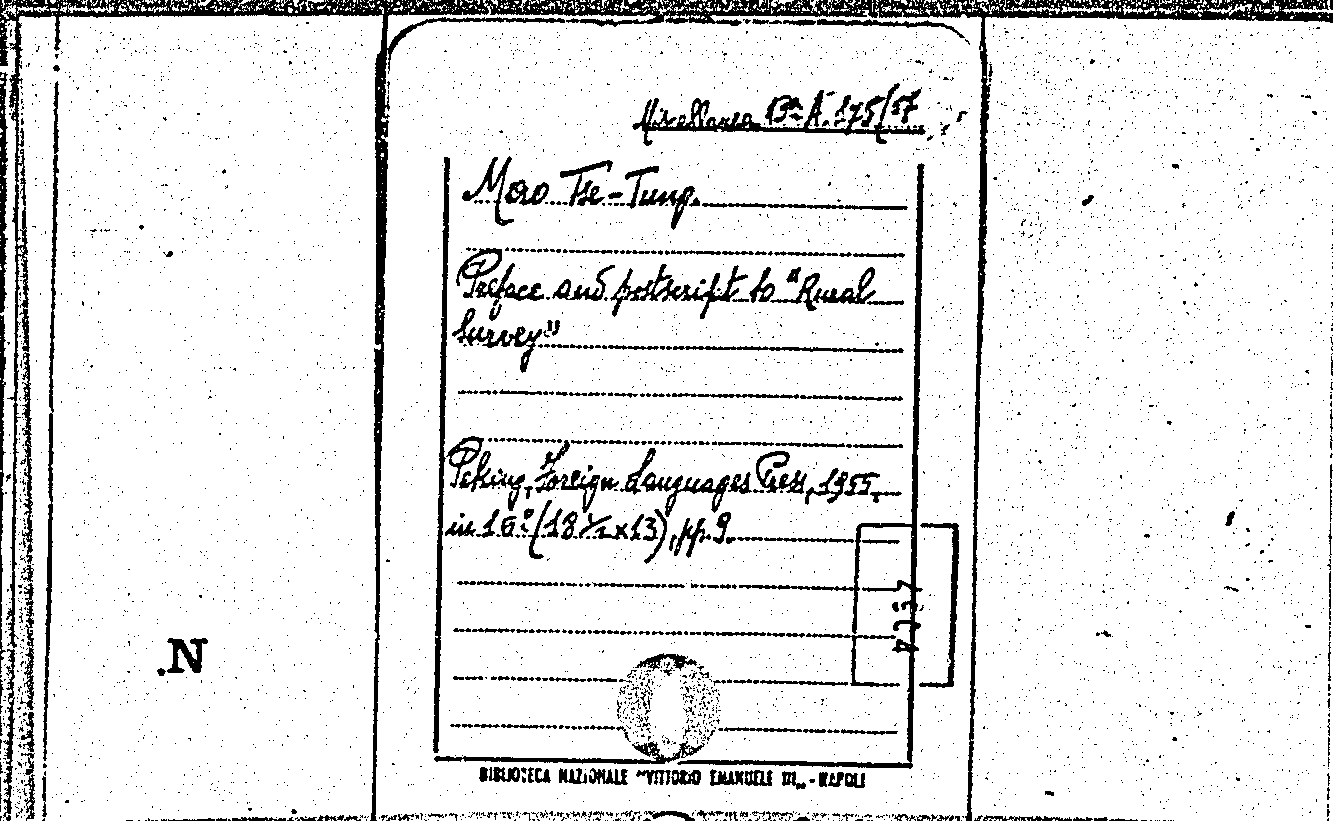 Miscellanea Bª A. 175/57
Mao Tse-Tung.
Preface and postscript to "Rural
Survey"
Peking, Foreign Languages Press, 1955,
in 16º (18 ½ x 13), pp. 9.
.N
BIBLIOTECA NAZIONALE "VITTORIO EMANUELE III" - NAPOLI